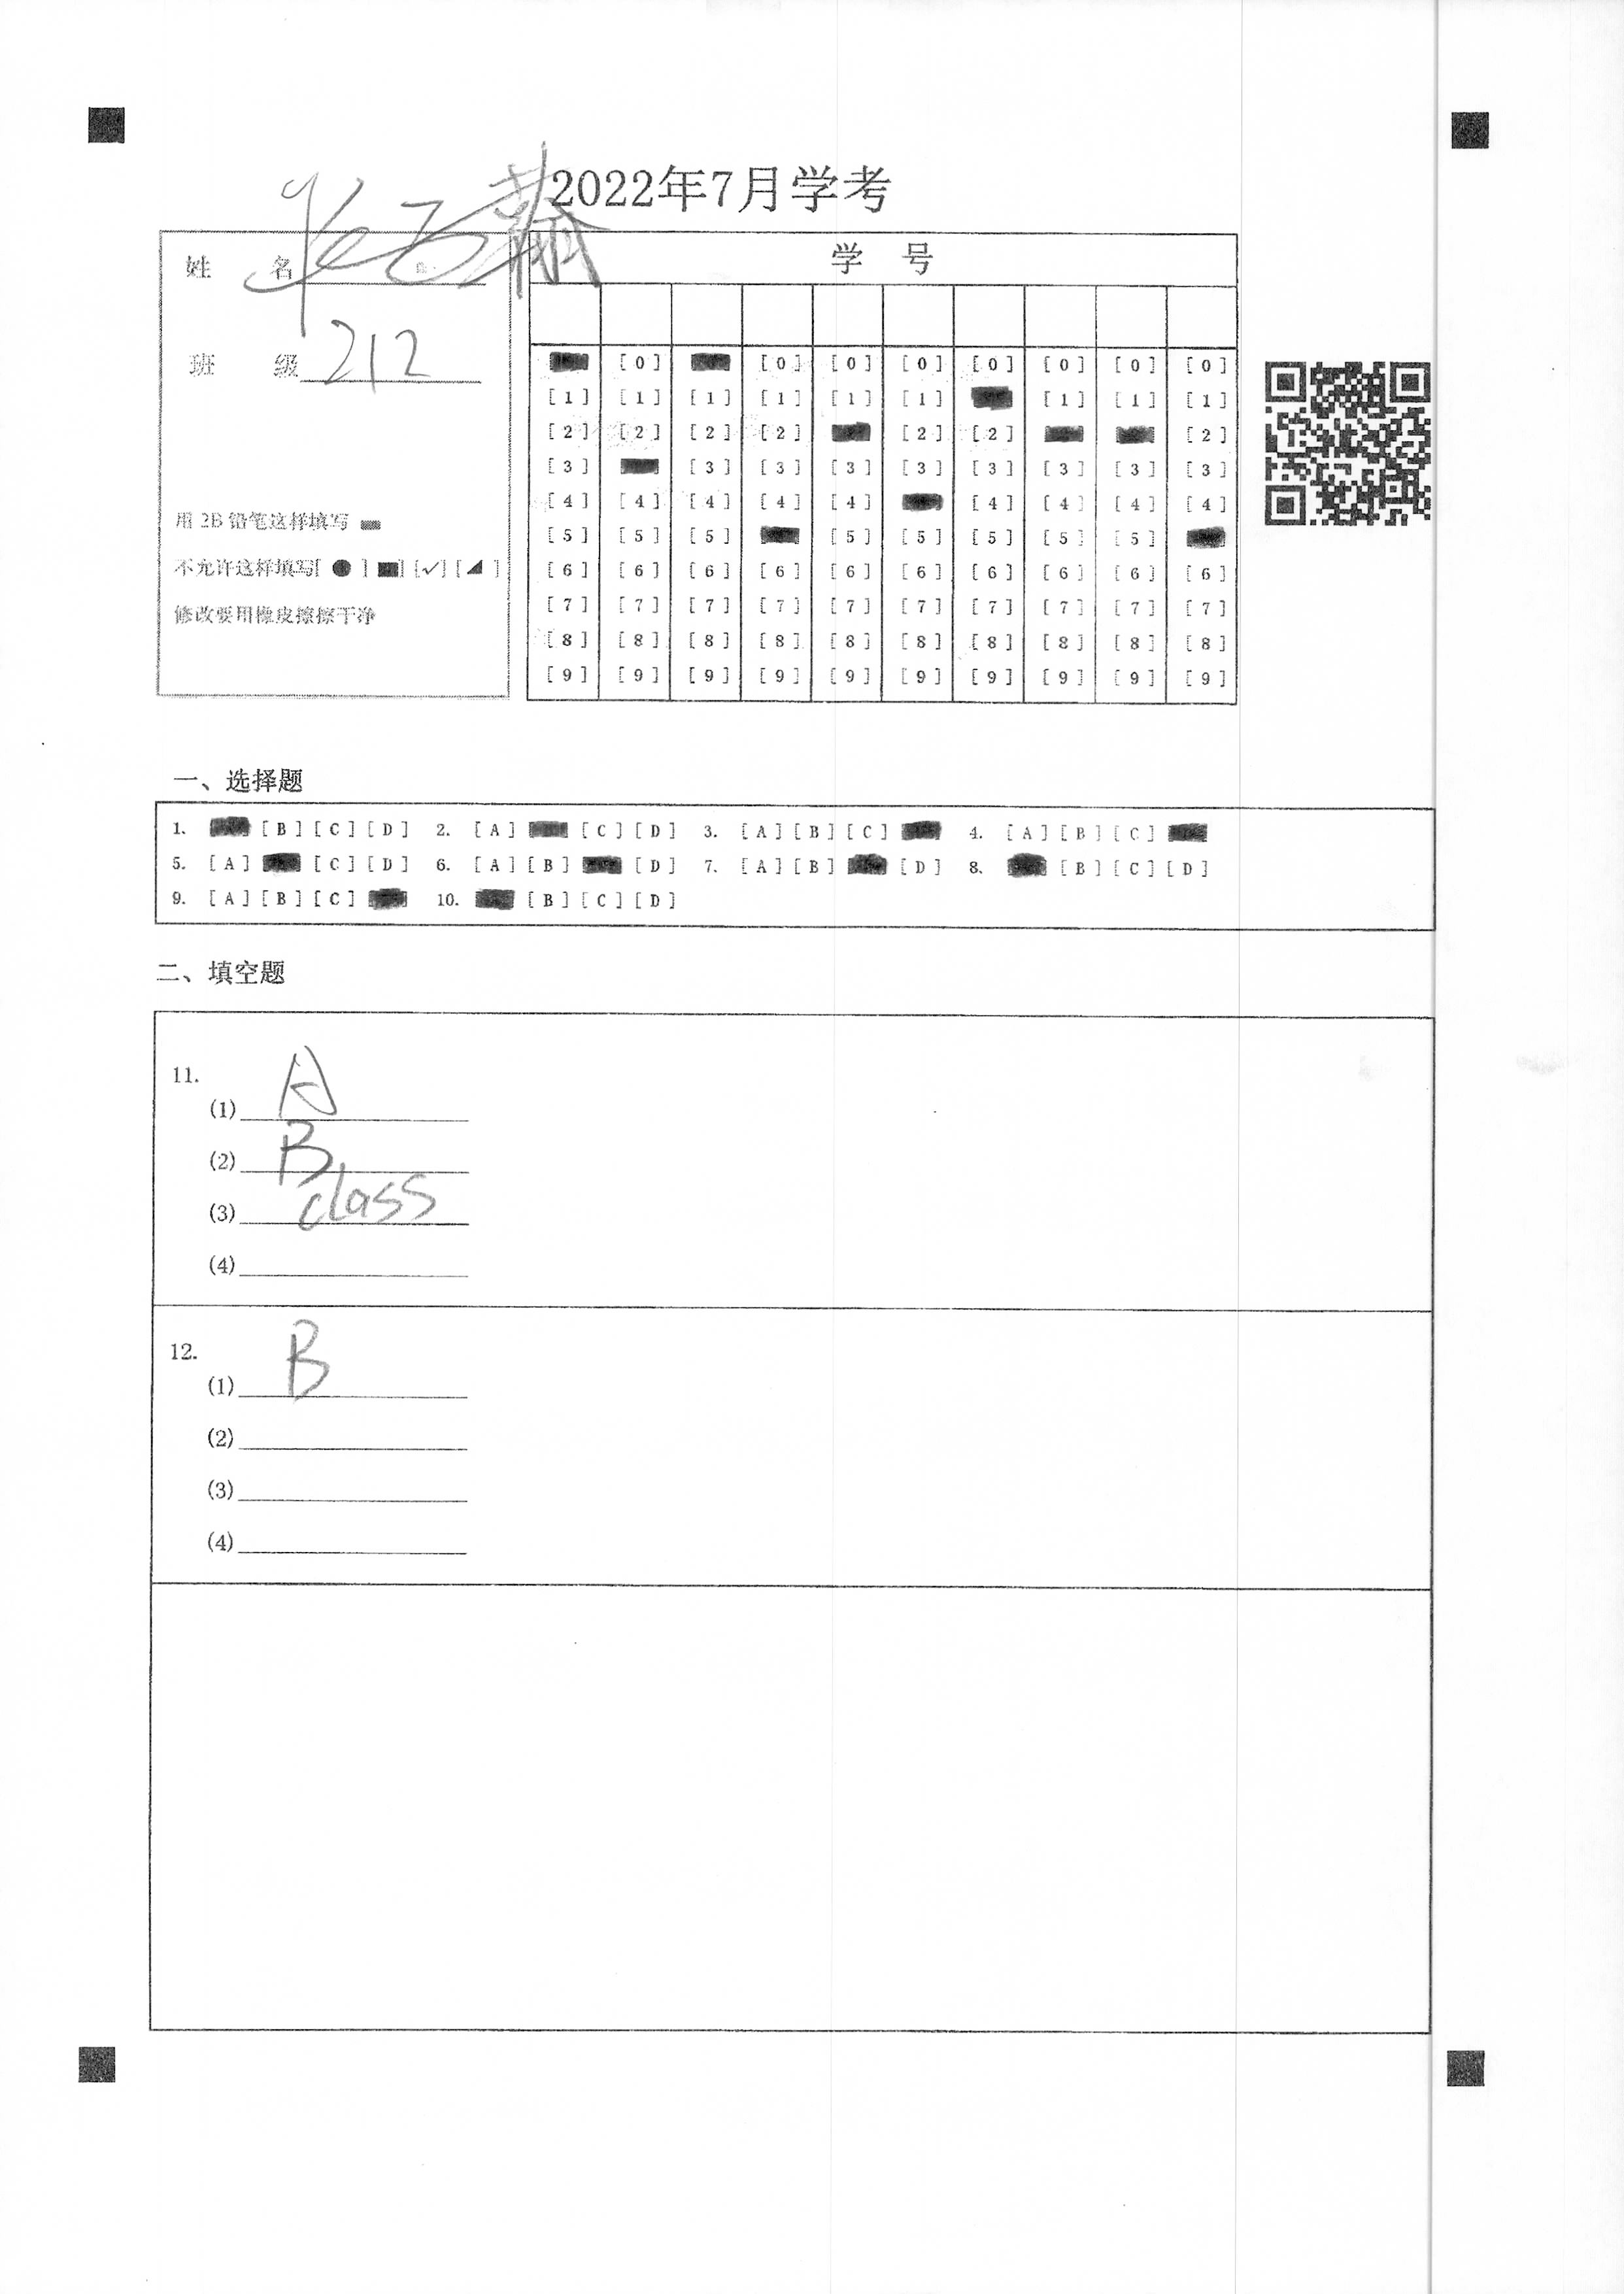 2022年7月学考
姓 名
班 级 212
用 2B 铅笔这样填写
不允许这样填写[ ● ] [■] [✓] [◢ ]
修改要用橡皮擦擦干净
学 号
[0] [0] [0] [0] [0] [0] [0] [0]
[1] [1] [1] [1] [1] [1] [1] [1] [1]
[2] [2] [2] [2] [2] [2] [2]
[3] [3] [3] [3] [3] [3] [3] [3] [3]
[4] [4] [4] [4] [4] [4] [4] [4] [4]
[5] [5] [5] [5] [5] [5] [5] [5]
[6] [6] [6] [6] [6] [6] [6] [6] [6] [6]
[7] [7] [7] [7] [7] [7] [7] [7] [7] [7]
[8] [8] [8] [8] [8] [8] [8] [8] [8] [8]
[9] [9] [9] [9] [9] [9] [9] [9] [9] [9]
一、选择题
1. [B] [C] [D] 2. [A] [C] [D] 3. [A] [B] [C] 4. [A] [B] [C]
5. [A] [C] [D] 6. [A] [B] [D] 7. [A] [B] [D] 8. [B] [C] [D]
9. [A] [B] [C] 10. [B] [C] [D]
二、填空题
11.
(1) A
(2) B
(3) class
(4)
12.
(1) B
(2)
(3)
(4)